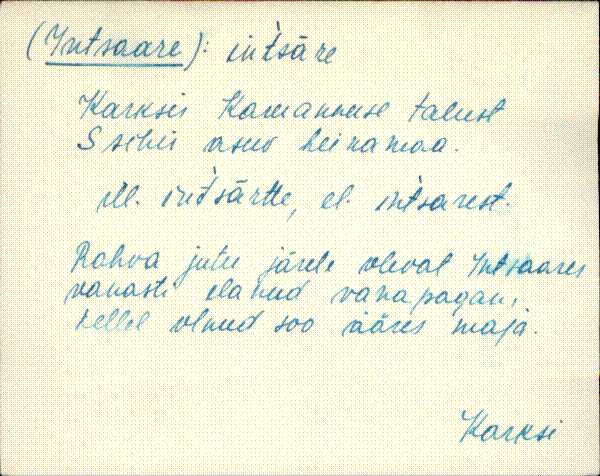 (Intsaare): int̀säre
Karksis Kamanuse talust
S sihis asuv heinamaa.
ill. int̀särtte, el. int̀sarest.
Rahva jutu järele oleval Intsaares
vanasti elanud vanapagan,
kellel olnud soo ääres maja.
Karksi